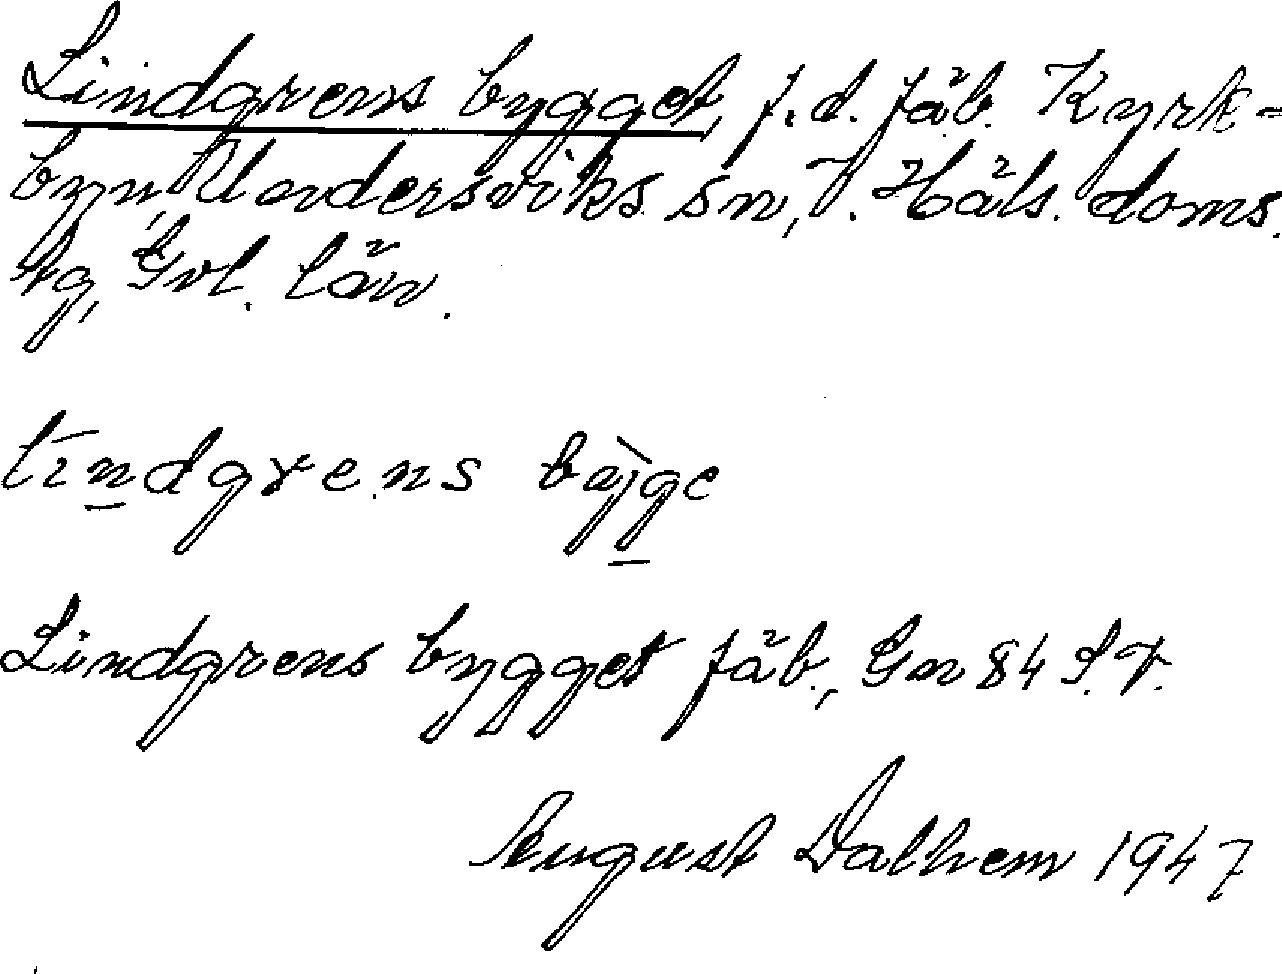 Lindgrens bygget, f.d. fäb. Kyrk-
byn, Undersviks sn, V. Häls. doms.
tg, Gvl. län.
lindgrens bajge
Lindgrens bygget fäb., Gn 84 S.V.
August Dalhem 1947